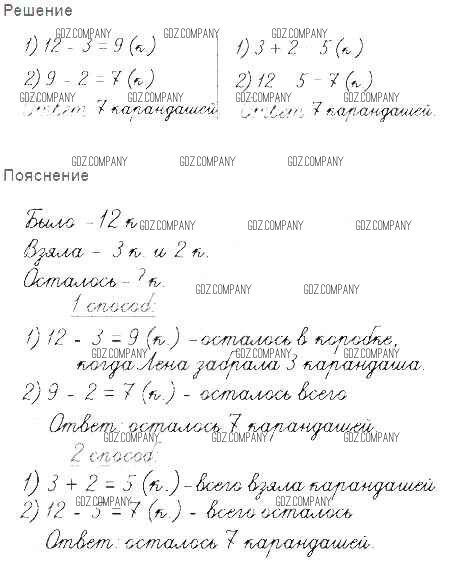 Решение
GDZ.COMPANY GDZ.COMPANY GDZ.COMPANY
1) 12 - 3 = 9 (к) 1) 3 + 2 5 (к)
2) 9 - 2 = 7 (к) 2) 12 5 - 7 (к)
GDZ.COMPANY GDZ.COMPANY GDZ.COMPANY
Ответ 7 карандашей Ответ 7 карандашей.
GDZ.COMPANY GDZ.COMPANY GDZ.COMPANY
Пояснение
Было - 12 к
GDZ.COMPANY GDZ.COMPANY GDZ.COMPANY
Взяла - 3 к. и 2 к.
Осталось - ? к.
GDZ.COMPANY GDZ.COMPANY
1 способ:
1) 12 - 3 = 9 (к.) - осталось в коробке,
GDZ.COMPANY GDZ.COMPANY GDZ.COMPANY
когда Лена забрала 3 карандаша.
2) 9 - 2 = 7 (к.) - осталось всего
Ответ: осталось 7 карандашей.
GDZ.COMPANY GDZ.COMPANY GDZ.COMPANY
2 способ:
1) 3 + 2 = 5 (к.) - всего взяла карандашей
GDZ.COMPANY GDZ.COMPANY GDZ.COMPANY
2) 12 - 5 = 7 (к.) - всего осталось
Ответ: осталось 7 карандашей.